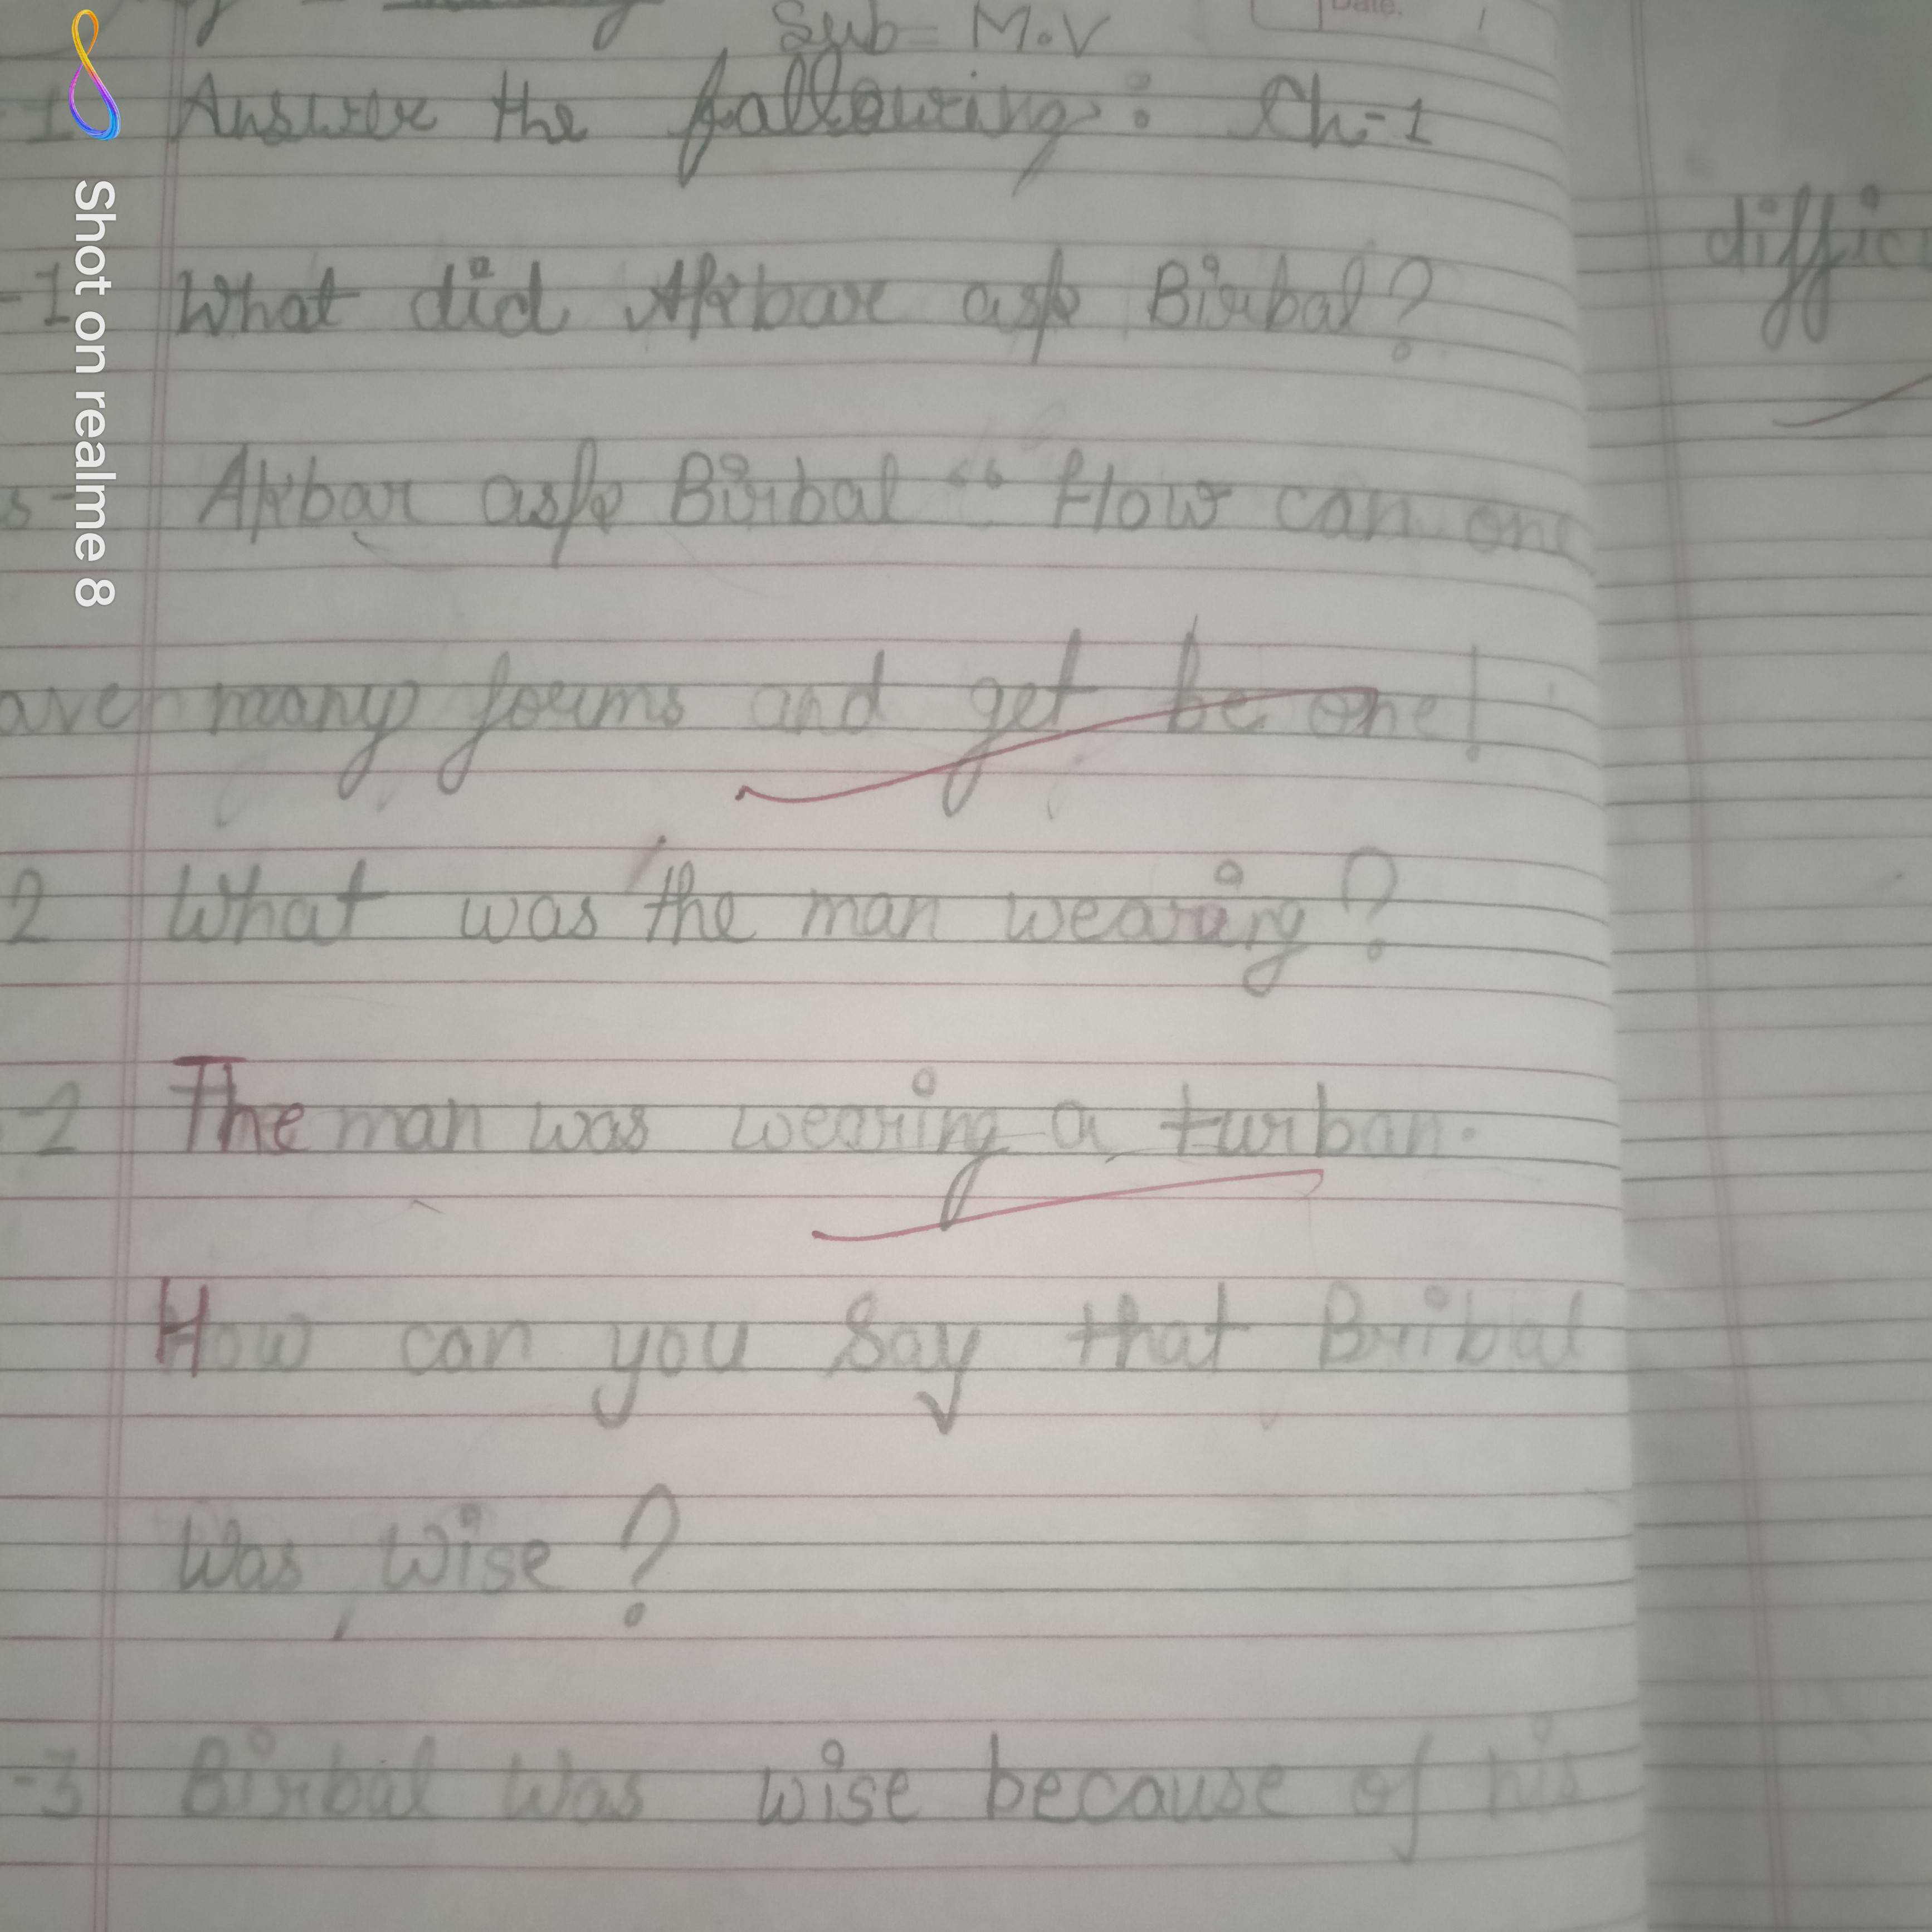 Sub= M.V
Date.
1 Answer the following: Ch-1
-1 What did Akbar ask Birbal?
s- Akbar ask Birbal “ How can one
ave many forms and get be one!
2 What was the man wearing?
-2 The man was wearing a turban.
How can you Say that Bribal
Was Wise?
-3 Birbal Was wise because of his
diffic
Shot on realme 8